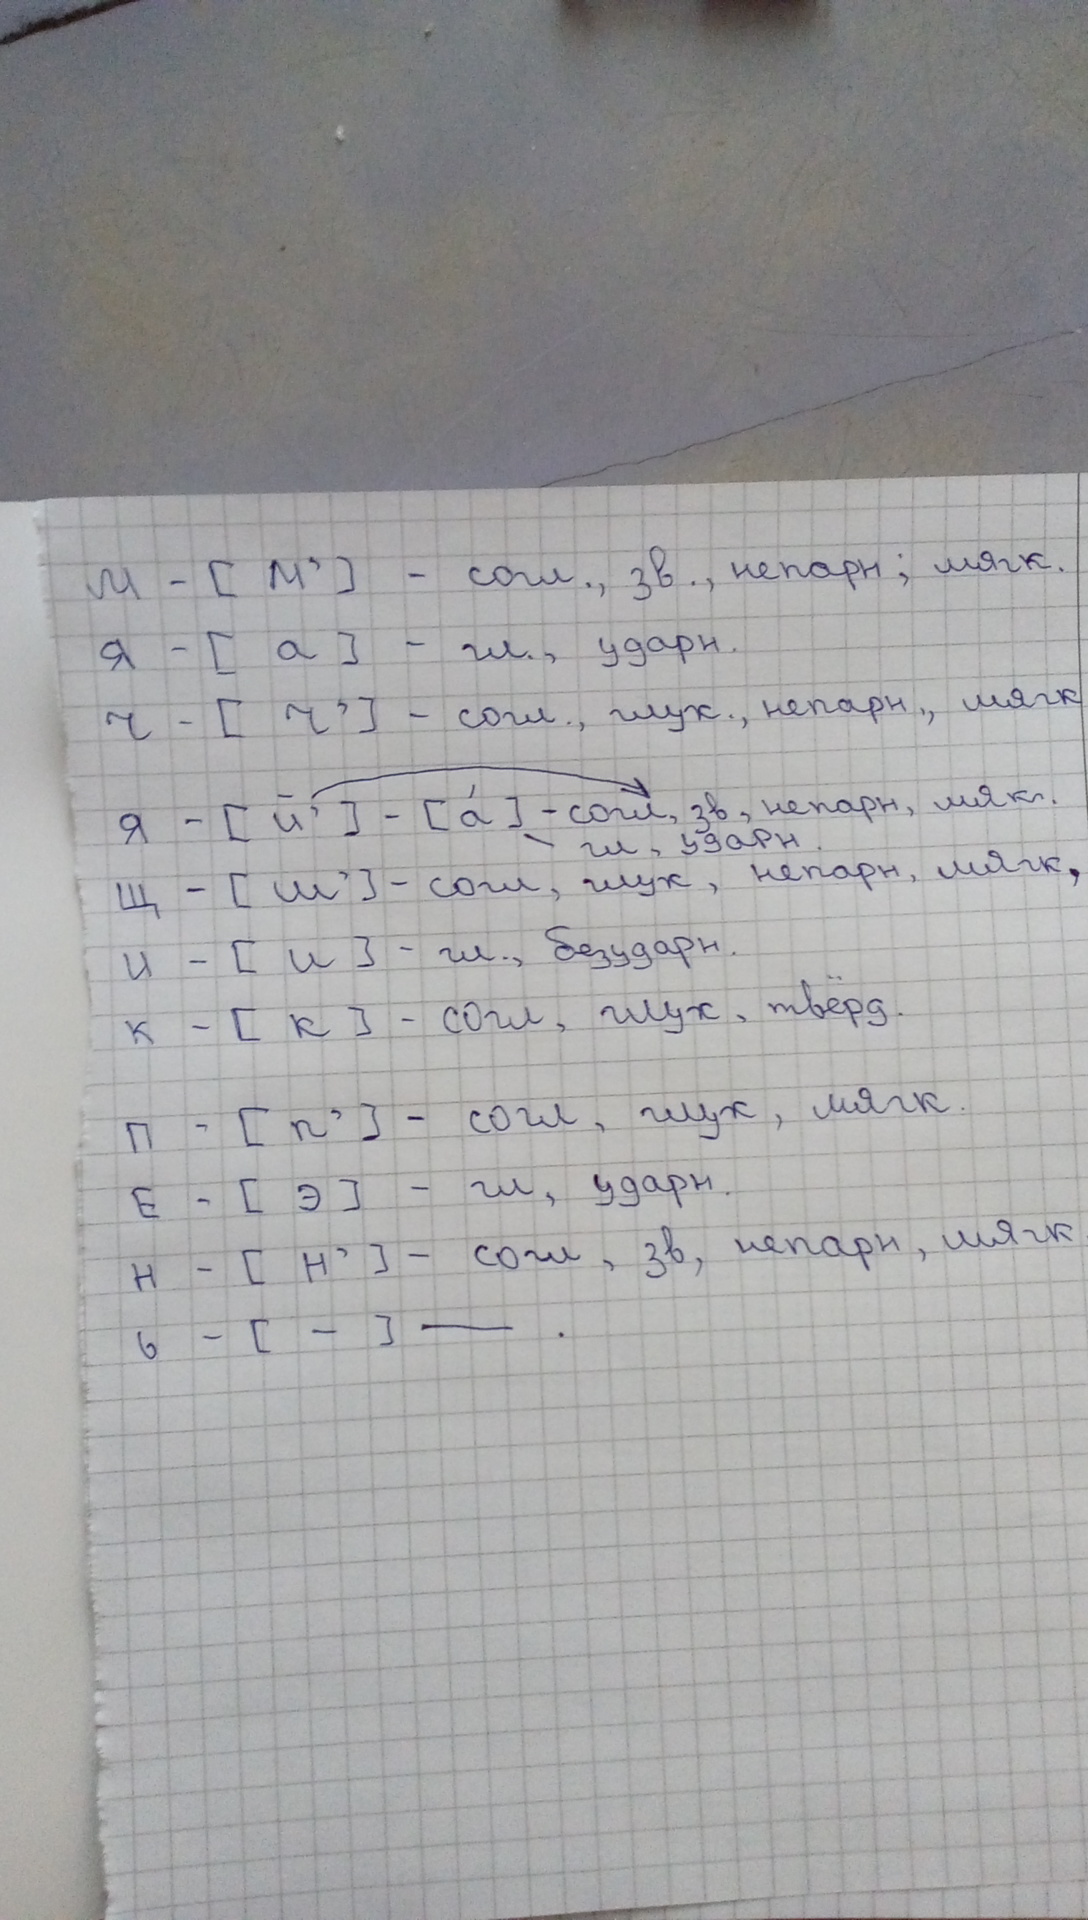 М - [ М' ] - согл., зв., непарн; мягк.
Я - [ а ] - гл., ударн.
Ч - [ Ч' ] - согл., глух., непарн., мягк
Я - [ й' ] - [ а́ ] - согл, зв, непарн, мякг.
- гл, ударн.
Щ - [ ш' ] - согл, глух, непарн, мягк,
И - [ и ] - гл., безударн.
К - [ к ] - согл, глух, твёрд.
П - [ п' ] - согл, глух, мягк.
Е - [ Э ] - гл, ударн.
Н - [ Н' ] - согл, зв, непарн, мягк
ь - [ - ] — .